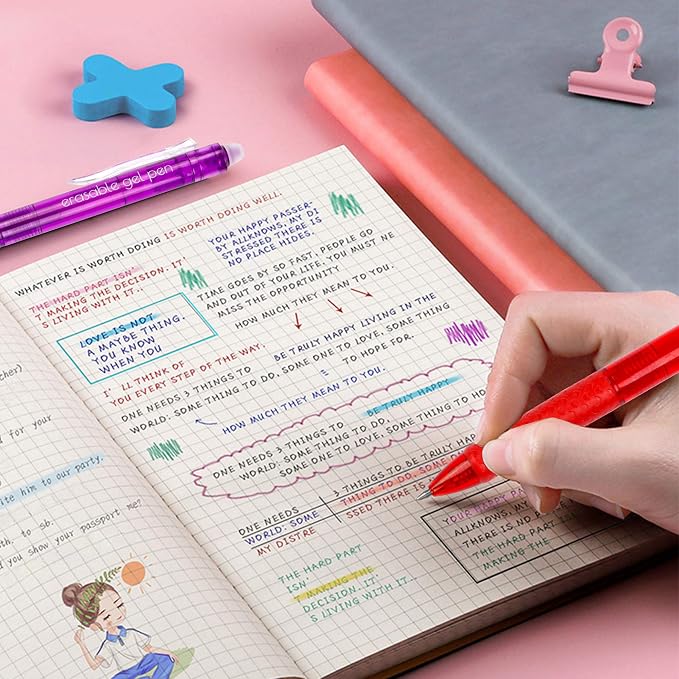 erasable gel pen
cher)
d for your
ite him to our party.
th, to sb.
d you show your passport me?
WHATEVER IS WORTH DOING IS WORTH DOING WELL.
THE HARD PART ISN'
T MAKING THE DECISION. IT'
S LIVING WITH IT..
YOUR HAPPY PASSER-
BY ALLKNOWS, MY DI
STRESSED THERE IS
NO PLACE HIDES.
TIME GOES BY SO FAST, PEOPLE GO
AND OUT OF YOUR LIFE. YOU MUST NE
MISS THE OPPORTUNITY
HOW MUCH THEY MEAN TO YOU.
LOVE IS NOT
A MAYBE THING.
YOU KNOW
WHEN YOU
BE TRULY HAPPY LIVING IN THE
WORLD: SOME THING TO DO, SOME ONE TO LOVE, SOME THING
TO HOPE FOR.
I' LL THINK OF
YOU EVERY STEP OF THE WAY.
ONE NEEDS 3 THINGS TO
HOW MUCH THEY MEAN TO YOU.
BE TRULY HAPPY
ONE NEEDS 3 THINGS TO
WORLD: SOME THING TO DO,
SOME ONE TO LOVE, SOME THING TO HO
ONE NEEDS
WORLD: SOME
MY DISTRE
3 THINGS TO BE TRULY HAPPY
THING TO DO, SOME ON
SSED THERE IS
YOUR HAPPY PASS
ALLKNOWS, MY D
THERE IS NO
THE HARD PART
MAKING THE
THE HARD PART
ISN'
T MAKING THE
DECISION. IT'
S LIVING WITH IT..